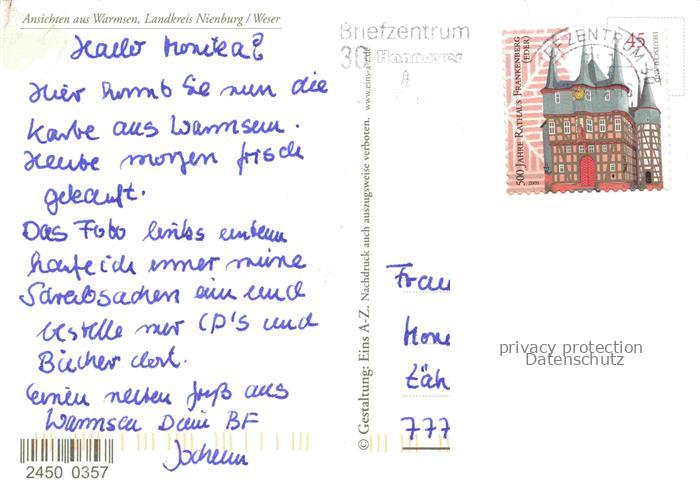 Ansichten aus Warmsen, Landkreis Nienburg / Weser
Hallo Monika!
Hier kommt Sie nun die
Karte aus Warmsen.
Heute morgen frisch
gekauft.
Das Foto links unten
kaufe ich immer meine
Schreibsachen ein und
bestelle mir CD's und
Bücher dort.
Einen netten Gruß aus
Warmsen Dein BF
Jochem
2450 0357
© Gestaltung: Eins A-Z. Nachdruck auch auszugsweise verboten. www.eins-a-z.de
Briefzentrum
30 Hannover
BRIEFZENTRUM 30
500 JAHRE RATHAUS FRANKENBERG
(EDER)
2009
45
DEUTSCHLAND
Frau
Mon
Zäh
777
privacy protection
Datenschutz